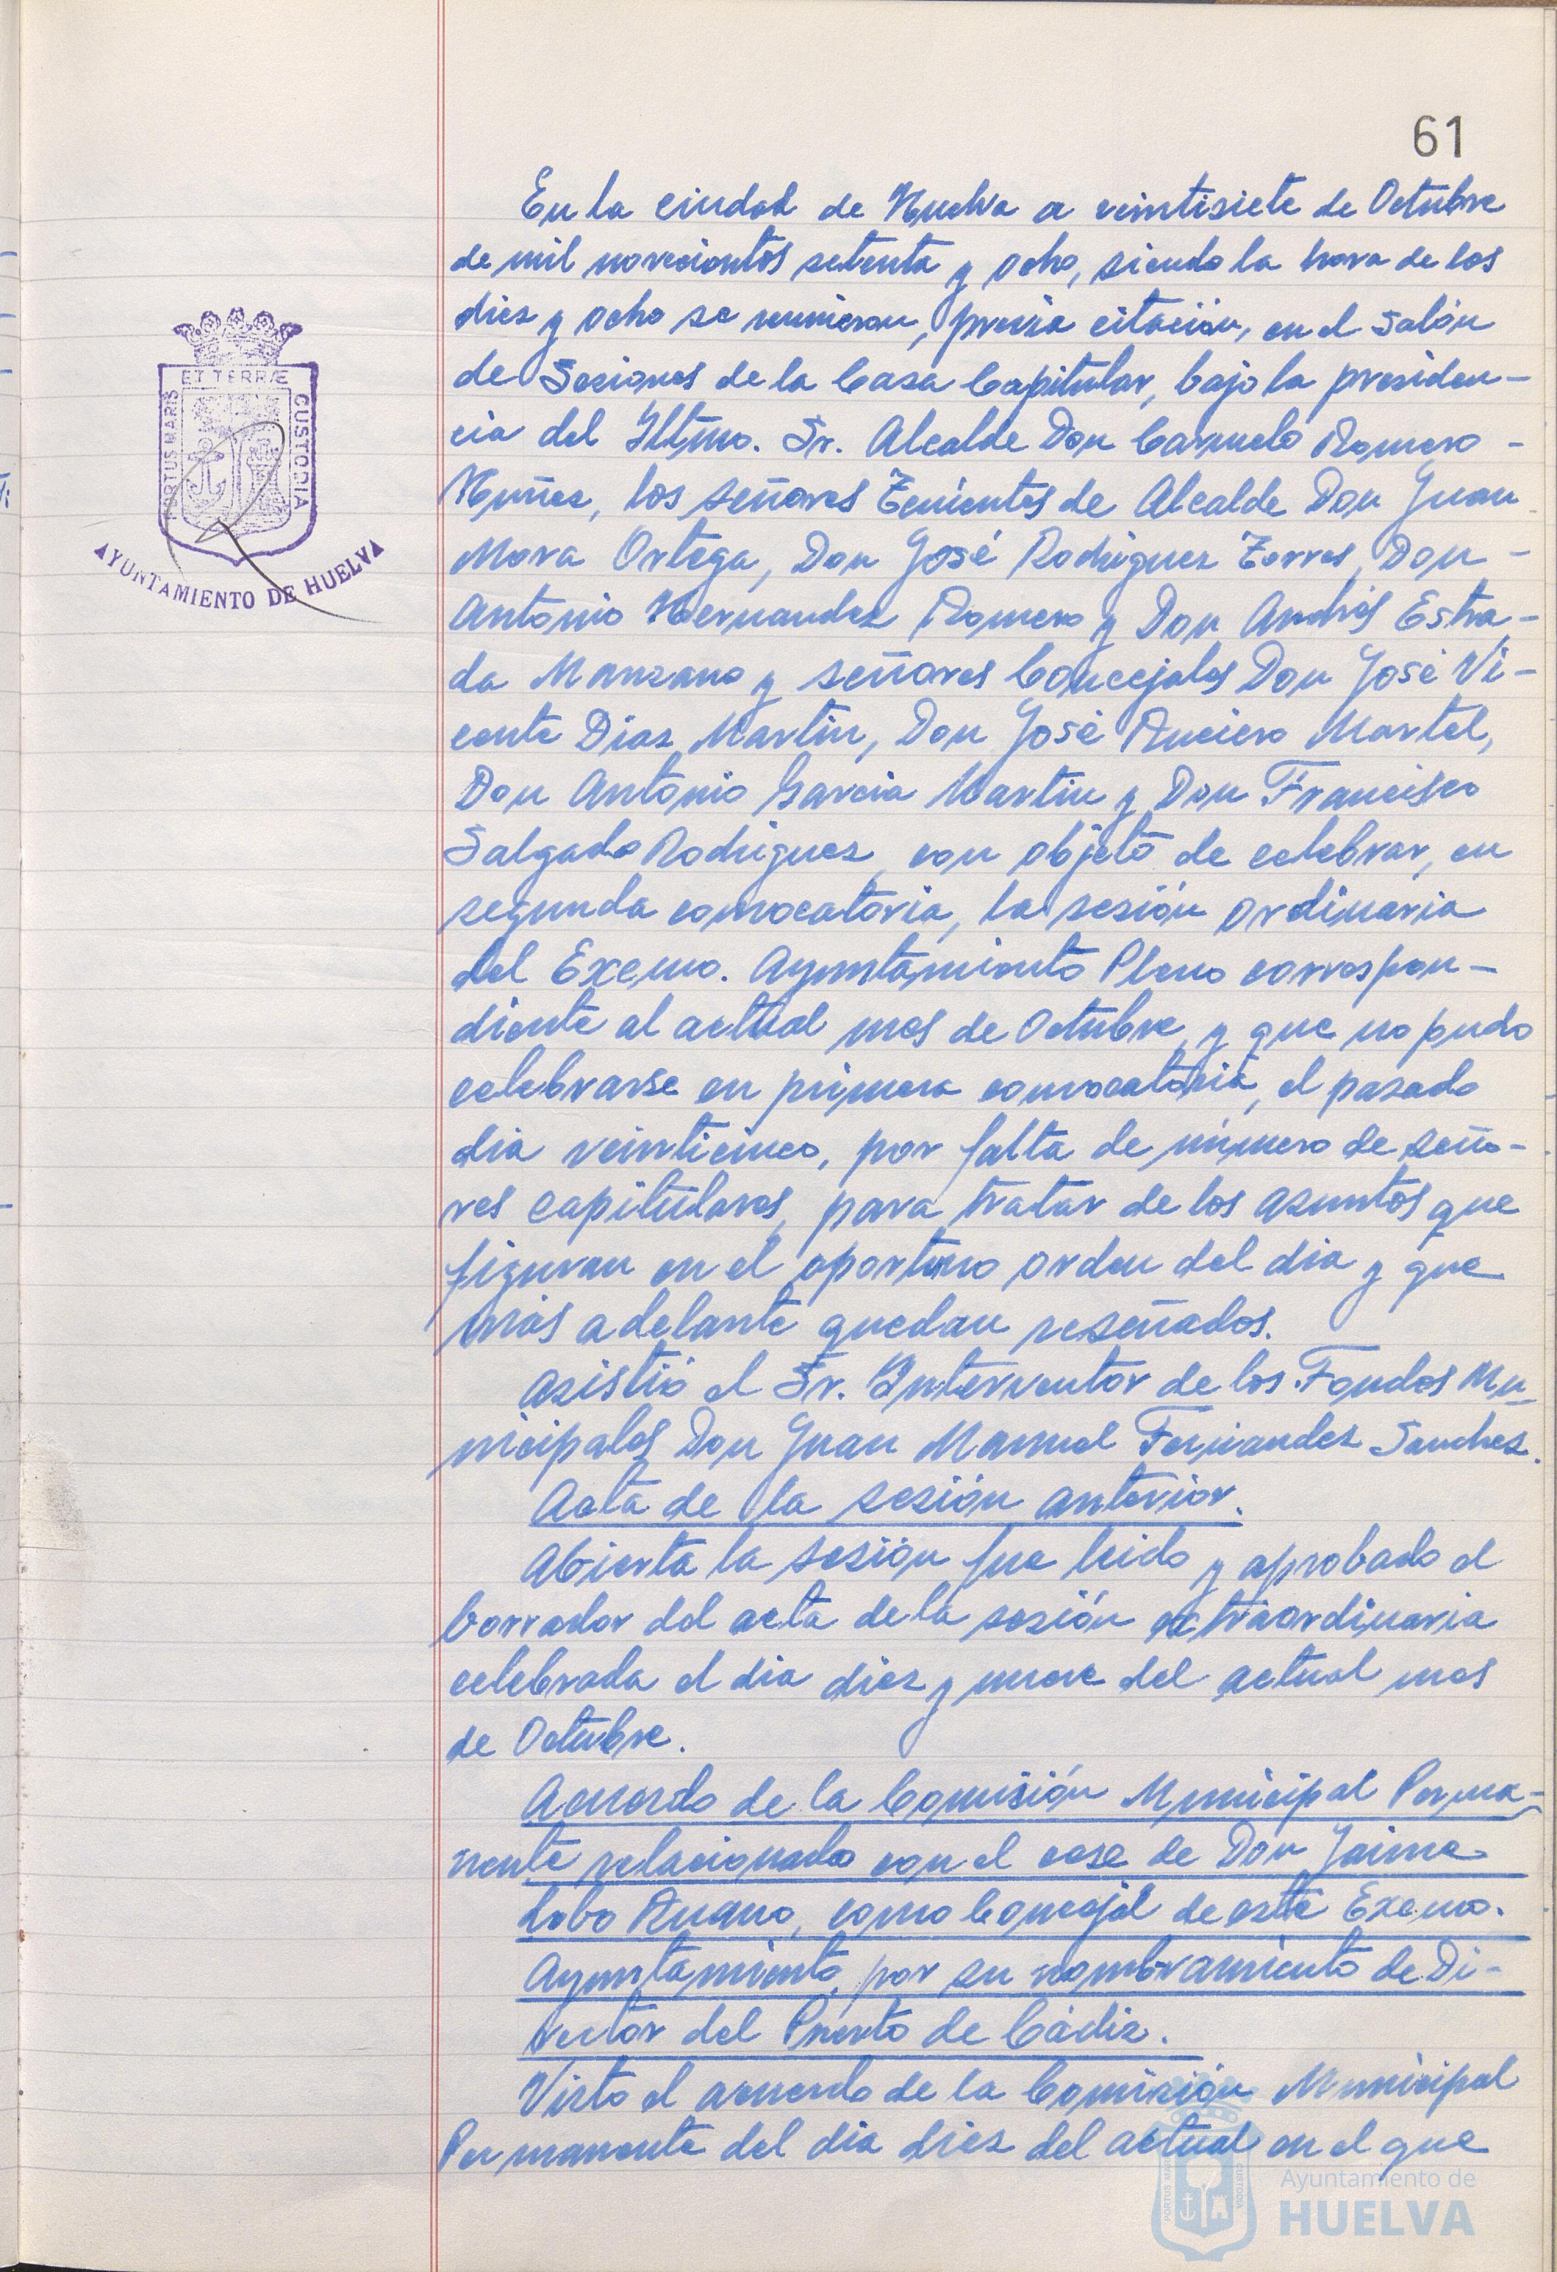 61
En la ciudad de Huelva a veintisiete de Octubre
de mil novecientos setenta y ocho, siendo la hora de las
diez y ocho se reunieron, previa citación, en el Salón
de Sesiones de la Casa Capitular, bajo la presiden-
cia del Iltmo. Sr. Alcalde Don Carmelo Romero -
Nuñez, los señores Tenientes de Alcalde Don Juan
Mora Ortega, Don José Rodriguez Torres, Don -
Antonio Hernandez Romero y Don Andrés Estra-
da Manzano y señores Concejales Don José Vi-
cente Diaz Martin, Don José Ruciero Martel,
Don Antonio Garcia Martin y Don Francisco
Salgado Rodriguez, con objeto de celebrar, en
segunda convocatoria, la sesión ordinaria
del Excmo. Ayuntamiento Pleno correspon-
diente al actual mes de Octubre, y que no pudo
celebrarse en primera convocatoria, el pasado
dia veinticinco, por falta de número de seño-
res capitulares, para tratar de los asuntos que
figuran en el oportuno orden del dia y que
más adelante quedan reseñados.
Asistió el Sr. Interventor de los Fondos Mu-
nicipales Don Juan Manuel Fernandez Sanchez.
Acta de la sesión anterior.
Abierta la sesión fue leido y aprobado el
borrador del acta de la sesión extraordinaria
celebrada el dia diez y nueve del actual mes
de Octubre.
Acuerdo de la Comisión Municipal Perma-
nente relacionado con el cese de Don Jaime
Lobo Ruano, como Concejal de este Excmo.
Ayuntamiento, por su nombramiento de Di-
rector del Puerto de Cádiz.
Visto el acuerdo de la Comisión Municipal
Permanente del dia diez del actual en el que
PORTUS MARIS
ET TERRÆ
CUSTODIA
AYUNTAMIENTO DE HUELVA
Ayuntamiento de
HUELVA